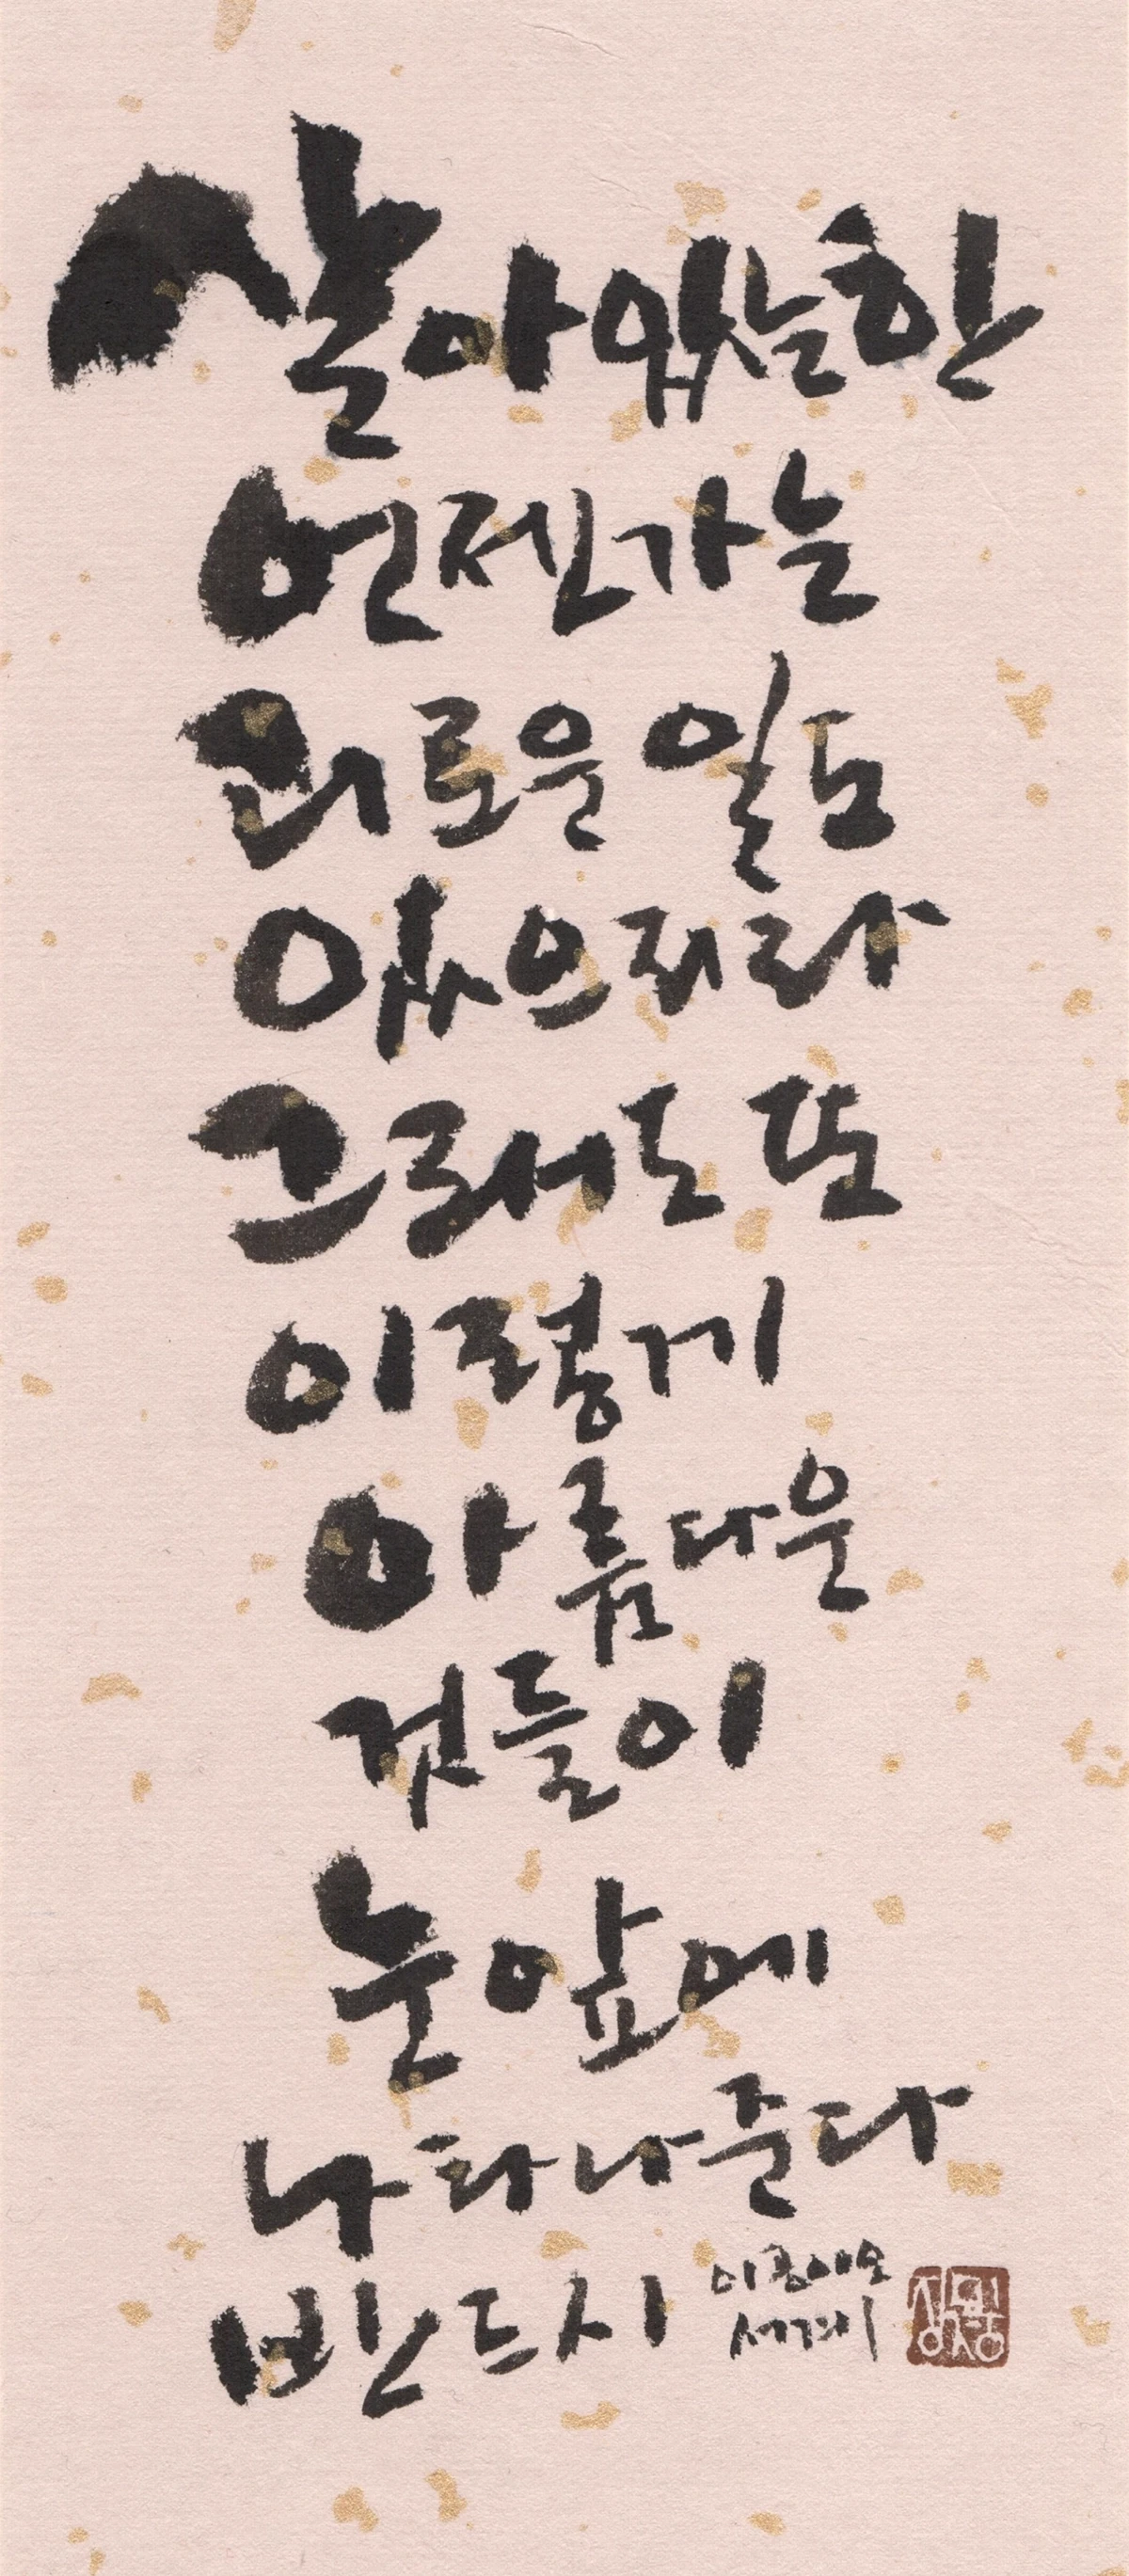 살아있는한
언젠가는
괴로운 일도
있으리라
그래서도 또
이렇게
아름다운
것들이
눈앞에
나타나준다
반드시